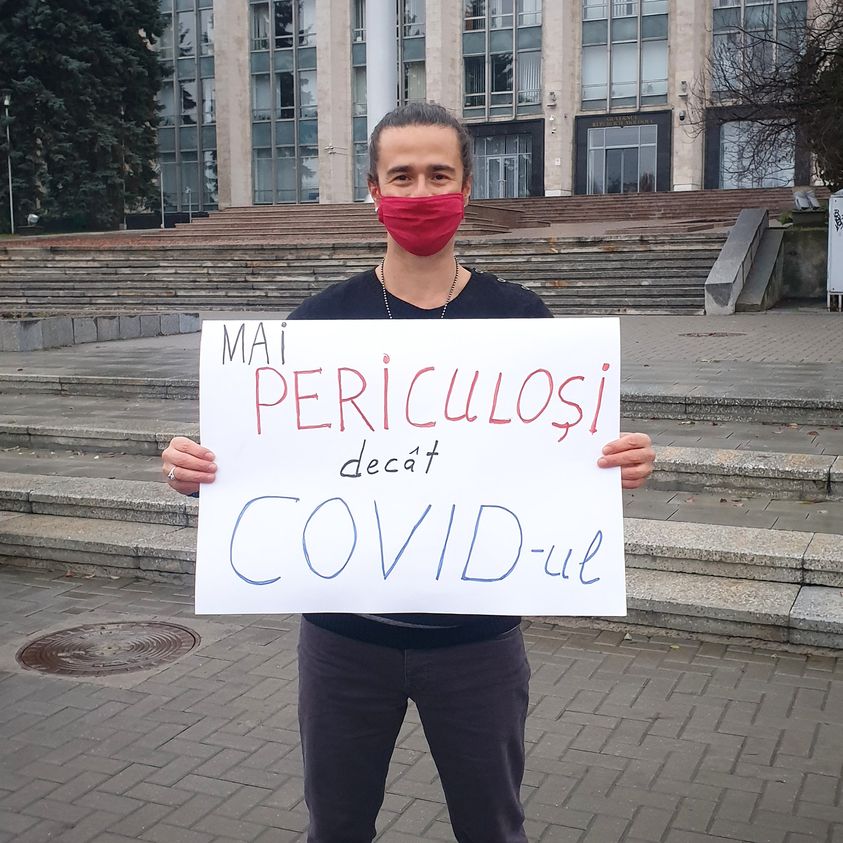 GUVERNUL
REPUBLICII MOLDOVA
MAI
PERICULOȘI
decât
COVID-ul